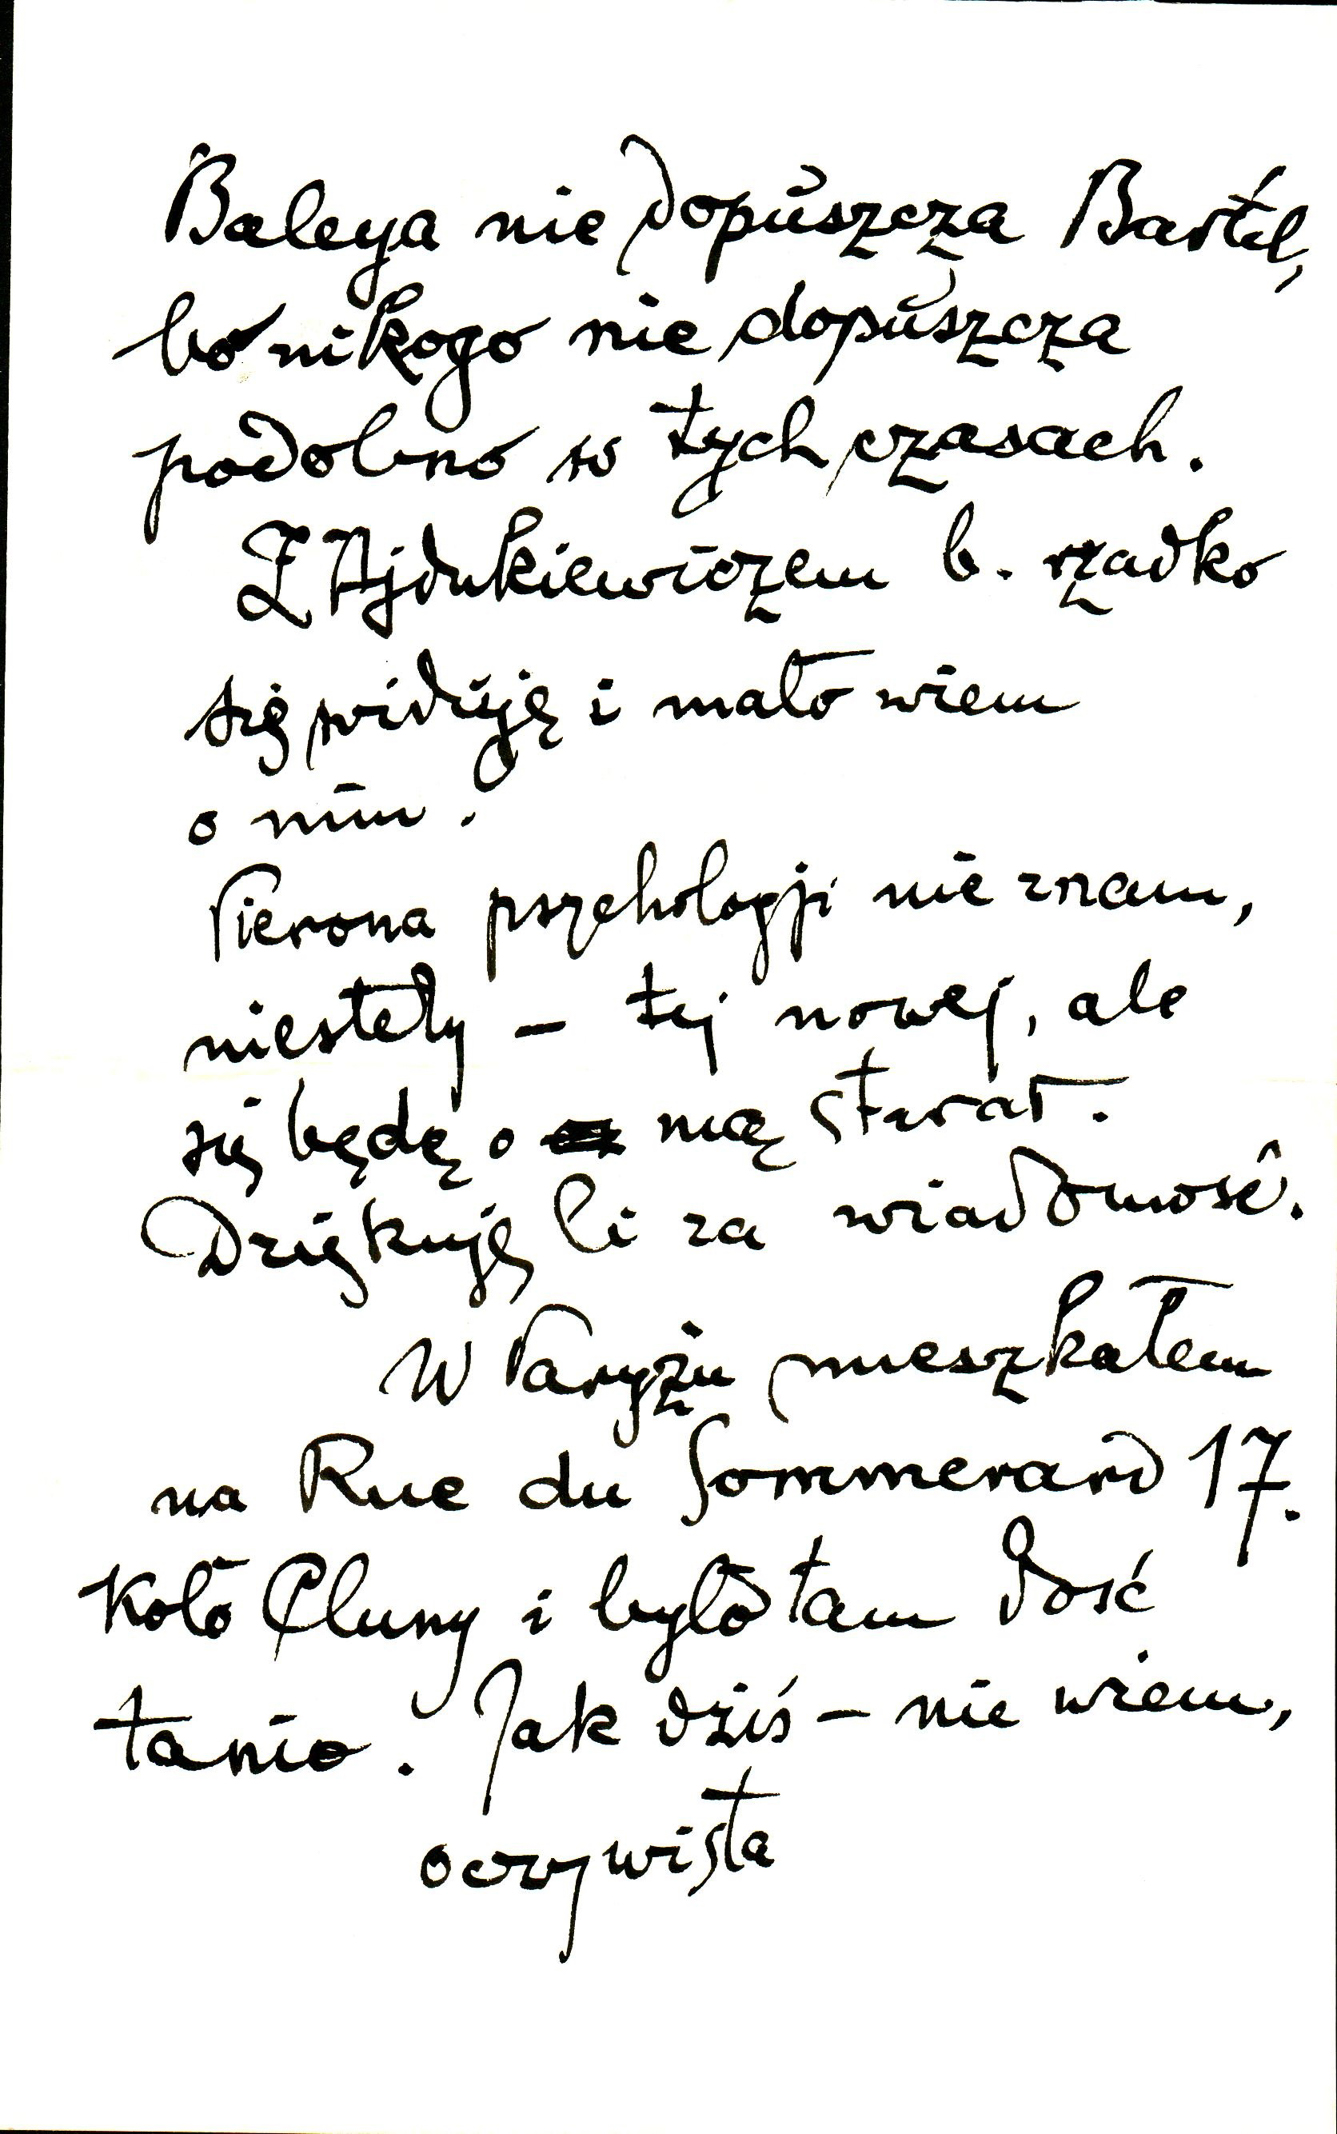 Baleya nie dopuszcza Bartel,
bo nikogo nie dopuszcza
podobno w tych czasach.
Z Ajdukiewiczem b. rzadko
się widuję i mało wiem
o nim.
Pierona psychologji nie znam,
niestety – tej nowej, ale
się będę o nią starał.
Dziękuję Ci za wiadomość.
W Paryżu mieszkałem
na Rue du Sommerard 17.
Koło Cluny i było tam dość
tanio. Jak dziś – nie wiem,
oczywista